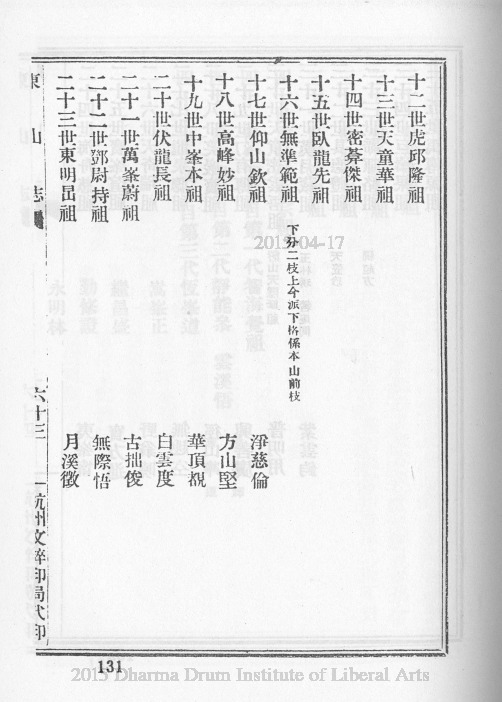 十二世虎邱隆祖
十三世天童華祖
十四世密菴傑祖
十五世臥龍先祖
十六世無準範祖 下分二枝上今派下格係本山前枝
十七世仰山欽祖 淨慈倫
十八世高峰妙祖 方山堅
十九世中峯本祖 華頂覩
二十世伏龍長祖 白雲度
二十一世萬峯蔚祖 古拙俊
二十二世鄧尉持祖 無際悟
二十三世東明旵祖 月溪徵
東山志
六十三
杭州文粹印局代印
131
2013-04-17
2013 Dharma Drum Institute of Liberal Arts